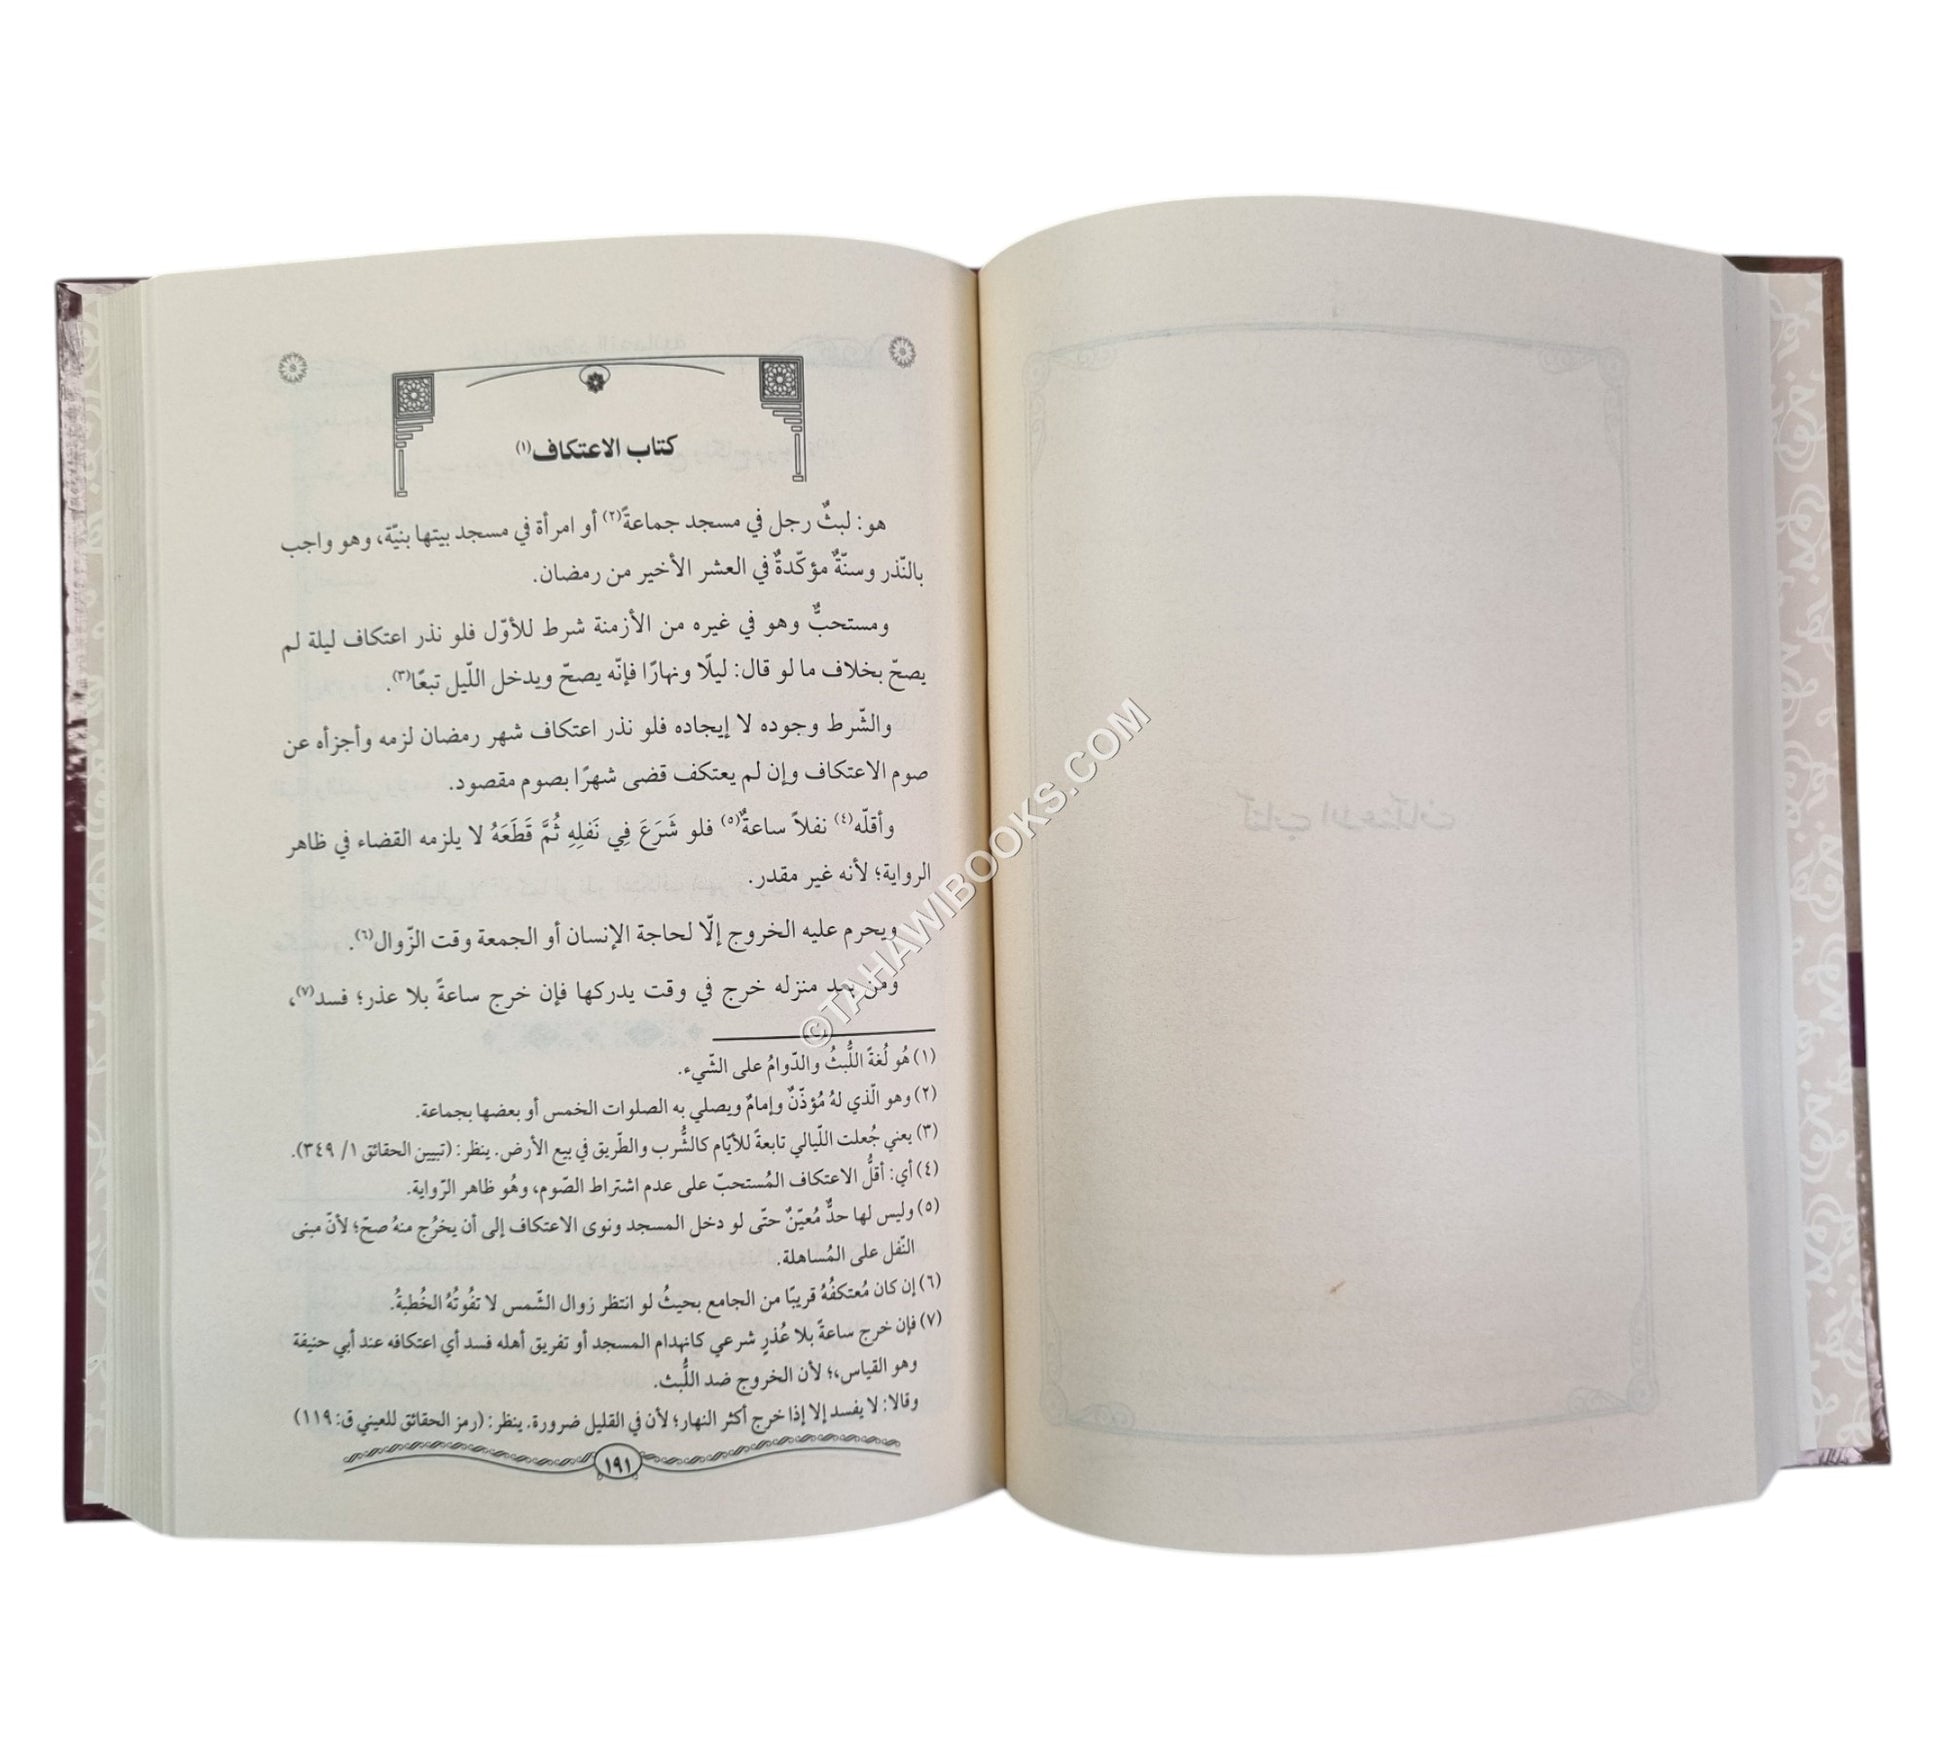 كتاب الاعتكاف(١)
هو: لبثٌ رجل في مسجد جماعةً(٢) أو امرأة في مسجد بيتها بنيّة، وهو واجب
بالنّذر وسنّةٌ مؤكّدةٌ في العشر الأخير من رمضان.
ومستحبٌّ وهو في غيره من الأزمنة شرط للأوّل فلو نذر اعتكاف ليلة لم
يصحّ بخلاف ما لو قال: ليلًا ونهارًا فإنّه يصحّ ويدخل اللّيل تبعًا(٣).
والشّرط وجوده لا إيجاده فلو نذر اعتكاف شهر رمضان لزمه وأجزأه عن
صوم الاعتكاف وإن لم يعتكف قضى شهرًا بصوم مقصود.
وأقلّه(٤) نفلاً ساعةٌ(٥) فلو شَرَعَ فِي نَفلِهِ ثُمَّ قَطَعَهُ لا يلزمه القضاء في ظاهر
الرواية؛ لأنه غير مقدر.
ويحرم عليه الخروج إلّا لحاجة الإنسان أو الجمعة وقت الزّوال(٦).
ومن بعد منزله خرج في وقت يدركها فإن خرج ساعةً بلا عذر؛ فسد(٧)،
(١) هُو لُغةً اللُّبثُ والدّوامُ على الشّيء.
(٢) وهو الّذي لهُ مُؤذّنٌ وإمامٌ ويصلي به الصلوات الخمس أو بعضها بجماعة.
(٣) يعني جُعلت اللّيالي تابعةً للأيّام كالشُّرب والطّريق في بيع الأرض. ينظر: (تبيين الحقائق ١/ ٣٤٩).
(٤) أي: أقلُّ الاعتكاف المُستحبّ على عدم اشتراط الصّوم، وهُو ظاهر الرّواية.
(٥) وليس لها حدٌّ مُعيّنٌ حتّى لو دخل المسجد ونوى الاعتكاف إلى أن يخرُج منهُ صحّ؛ لأنّ مبنى
النّفل على المُساهلة.
(٦) إن كان مُعتكفُهُ قريبًا من الجامع بحيثُ لو انتظر زوال الشّمس لا تفُوتُهُ الخُطبةُ.
(٧) فإن خرج ساعةً بلا عُذرٍ شرعي كانهدام المسجد أو تفريق أهله فسد أي اعتكافه عند أبي حنيفة
وهو القياس،؛ لأن الخروج ضد اللُّبث.
وقالا: لا يفسد إلا إذا خرج أكثر النهار؛ لأن في القليل ضرورة. ينظر: (رمز الحقائق للعيني ق: ١١٩)
١٩١
©TAHAWIBOOKS.COM